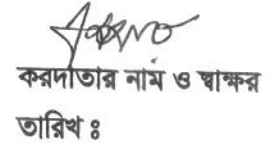 করদাতার নাম ও স্বাক্ষর
তারিখ ঃ